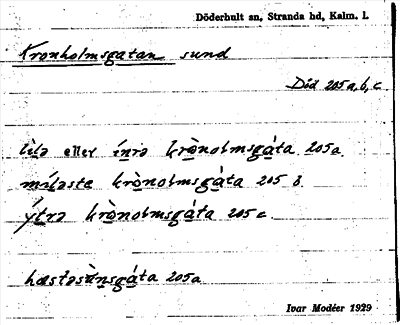 Döderhult sn, Stranda hd, Kalm. l.
Kronholmsgatan sund
Död 205 a, b, c
lìlə eller ínrə krònolmsgáta 205 a
míləstə krònolmsgáta 205 b
ýtrə krònolmsgáta 205 c
hæstəsùnsgáta 205 a
Ivar Modéer 1929